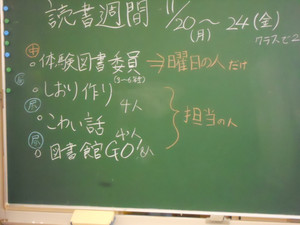 読書週間 11/20〜24(金)
(月) クラスで2
中 体験図書委員 ⇒曜日の人だけ
しおり作り 4人
尽 こわい話 4人
尽 図書館GO! 8人
担当の人